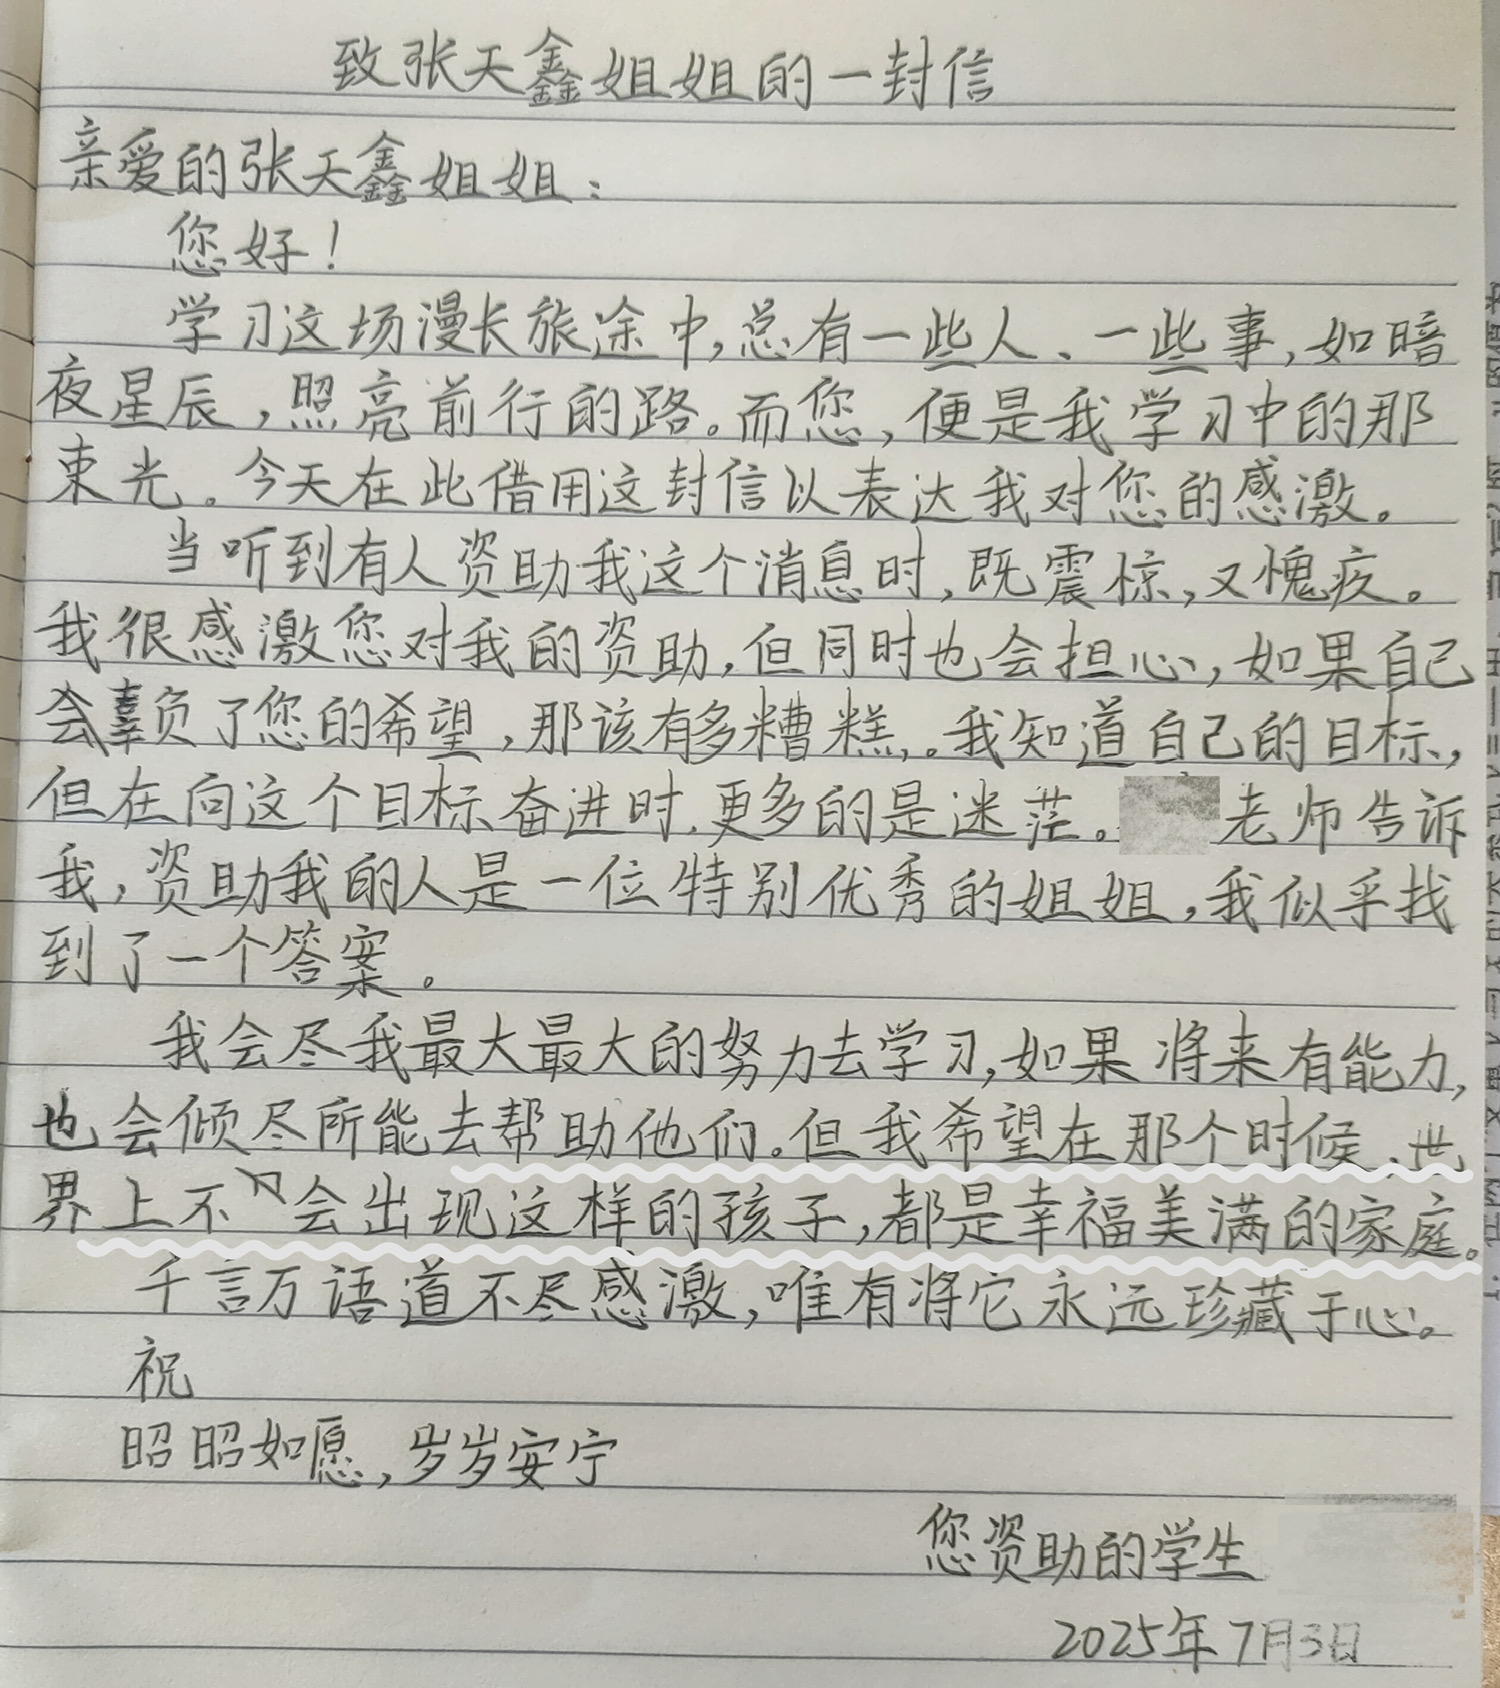 致张天鑫姐姐的一封信
亲爱的张天鑫姐姐：
您好！
学习这场漫长旅途中，总有一些人、一些事，如暗
夜星辰，照亮前行的路。而您，便是我学习中的那
束光。今天在此借用这封信以表达我对您的感激。
当听到有人资助我这个消息时，既震惊，又愧疚。
我很感激您对我的资助，但同时也会担心，如果自己
会辜负了您的希望，那该有多糟糕。我知道自己的目标，
但在向这个目标奋进时，更多的是迷茫。老师告诉
我，资助我的人是一位特别优秀的姐姐，我似乎找
到了一个答案。
我会尽我最大最大的努力去学习，如果将来有能力，
也会倾尽所能去帮助他们。但我希望在那个时候，世
界上不会出现这样的孩子，都是幸福美满的家庭。
千言万语道不尽感激，唯有将它永远珍藏于心。
祝
昭昭如愿，岁岁安宁
您资助的学生
2025年7月3日